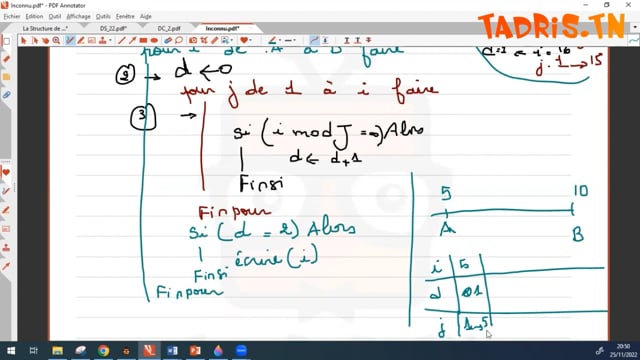 Inconnu.pdf* - PDF Annotator
Fichier Edition Annoter Affichage Outils Aide
La Structure de ... DS_22.pdf* DC_2.pdf Inconnu.pdf*
TADRIS.TN
pour i de A à B faire
② → d ← 0
pour j de 1 à i faire
③ →
Si (i mod J = 0) Alors
d ← d+1
Finsi
Finpour
Si (d = 2) Alors
écrire (i)
Finsi
Finpour
j : 1 → 15
5 10
A B
i 5
d 0 1
j 1→5
20:50
25/11/2022